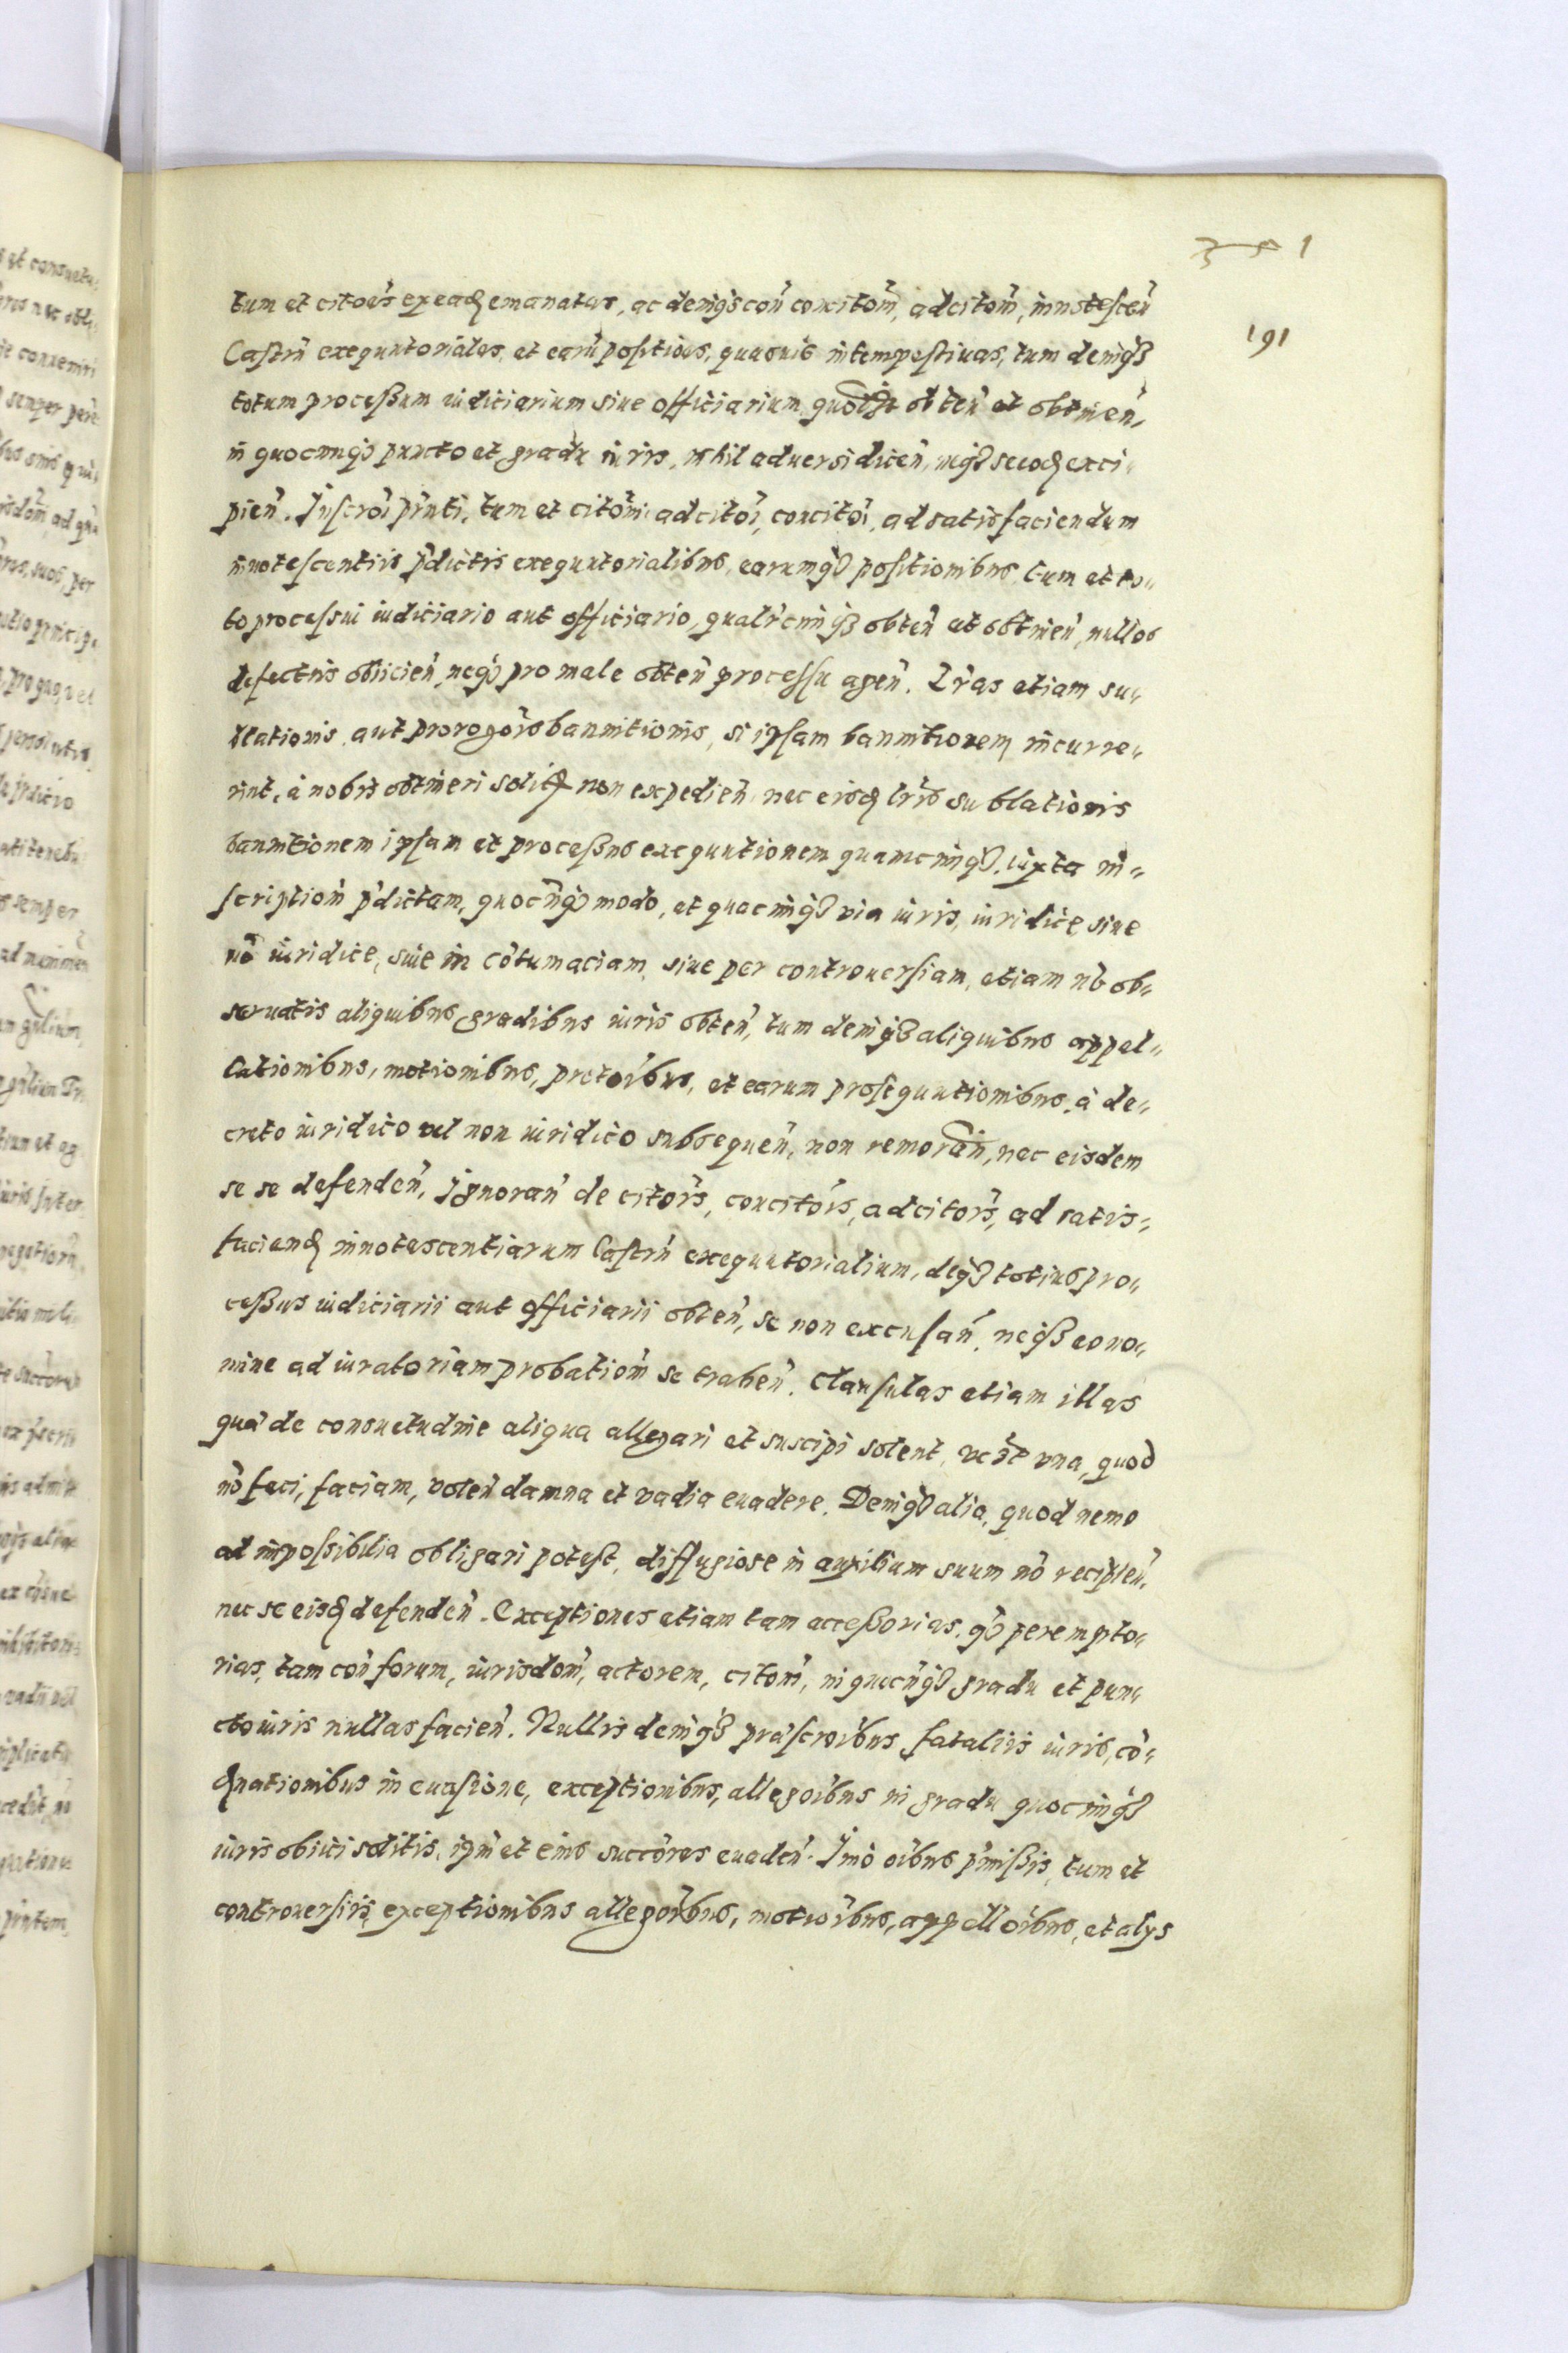 351
191
tum et citoēs ex eadē emanatas, ac deniqȝ con̄ concitom̄, adcitom̄, innotescen̄
Castrn̄ exequutoriales, et earū positioēs, quasuis intempestiuas, tum deniqȝ
totum processum iudiciarium siue officiarium obten̄ et obtinen̄,
in quocunqȝ puncto et gradu iuris, nihil aduersi dicen̄, neqȝ exci-
pien̄. Inscroī pn̄ti, tum et citom̄ adcitoī, concitoī, ad satisfaciendum
innotescentiis pdictis exequutorialibus, earumqȝ positionibus, tum et to-
to processui iudiciario aut officiario, qualr̄cunqȝ obten̄ et obtinen̄, nullos
defectus obiicien̄, neqȝ pro male obten̄ processu agen̄. Lr̄as etiam su-
blationis aut prorogoīs bannitionis, si ipsam bannitionem incurre-
rint, à nobis obtineri solitas non expedien̄, nec eisdē lris sublationis
bannitionem ipsam et processus exequutionem quamcunqȝ, iuxta in-
scriptiom̄ pdictam, quocunqȝ modo, et quacunqȝ via iuris, iuridicè siue
nō iuridicè, siue in cōtumaciam, siue per controuersiam, etiam nō ob-
seruatis aliquibus gradibus iuris obten̄, tum deniqȝ aliquibus appel-
lationibus, motionibus, protoībus, et earum prosequutionibus, à de-
creto iuridico vel non iuridico subsequen̄, non remoran̄, nec eisdem
se se defenden̄, Ignoran̄ de citoīs, concitoīs, adcitoīs, ad satis-
faciendā innotescentiarum Castrn̄ exequutorialium, deqȝ totius pro-
cessus iudiciarii aut officiarii obten̄, se non excusan̄, neqȝ eo no-
mine ad iuratoriam probatiom̄ se trahen̄. Clausulas etiam illas
quæ de consuetudine aliqua allegari et suscipi solent, vna, quod
nō feci, faciam, volen̄ damna et vadia euadere. Deniqȝ alia, quod nemo
ad impossibilia obligari potest, diffugiosè in auxilium suum nō recipien̄,
nec se eisdē defenden̄. Exceptiones etiam tam accessorias, qȝ perempto-
rias, tam con̄ forum, iurisdom̄, actorem, citom̄, in quocunqȝ gradu et pun-
cto iuris nullas facien̄. Nullis deniqȝ præscroībus, fataliis iuris, cō-
dnationibus in euasione, exceptionibus, allegoībus in gradu quocunqȝ
iuris obiici solitis, ipm̄ et eius succōres euaden̄. Imò oībus pmissis, tum et
controuersiis exceptionibus allegoībus, motioībus, appelloībus, et alys